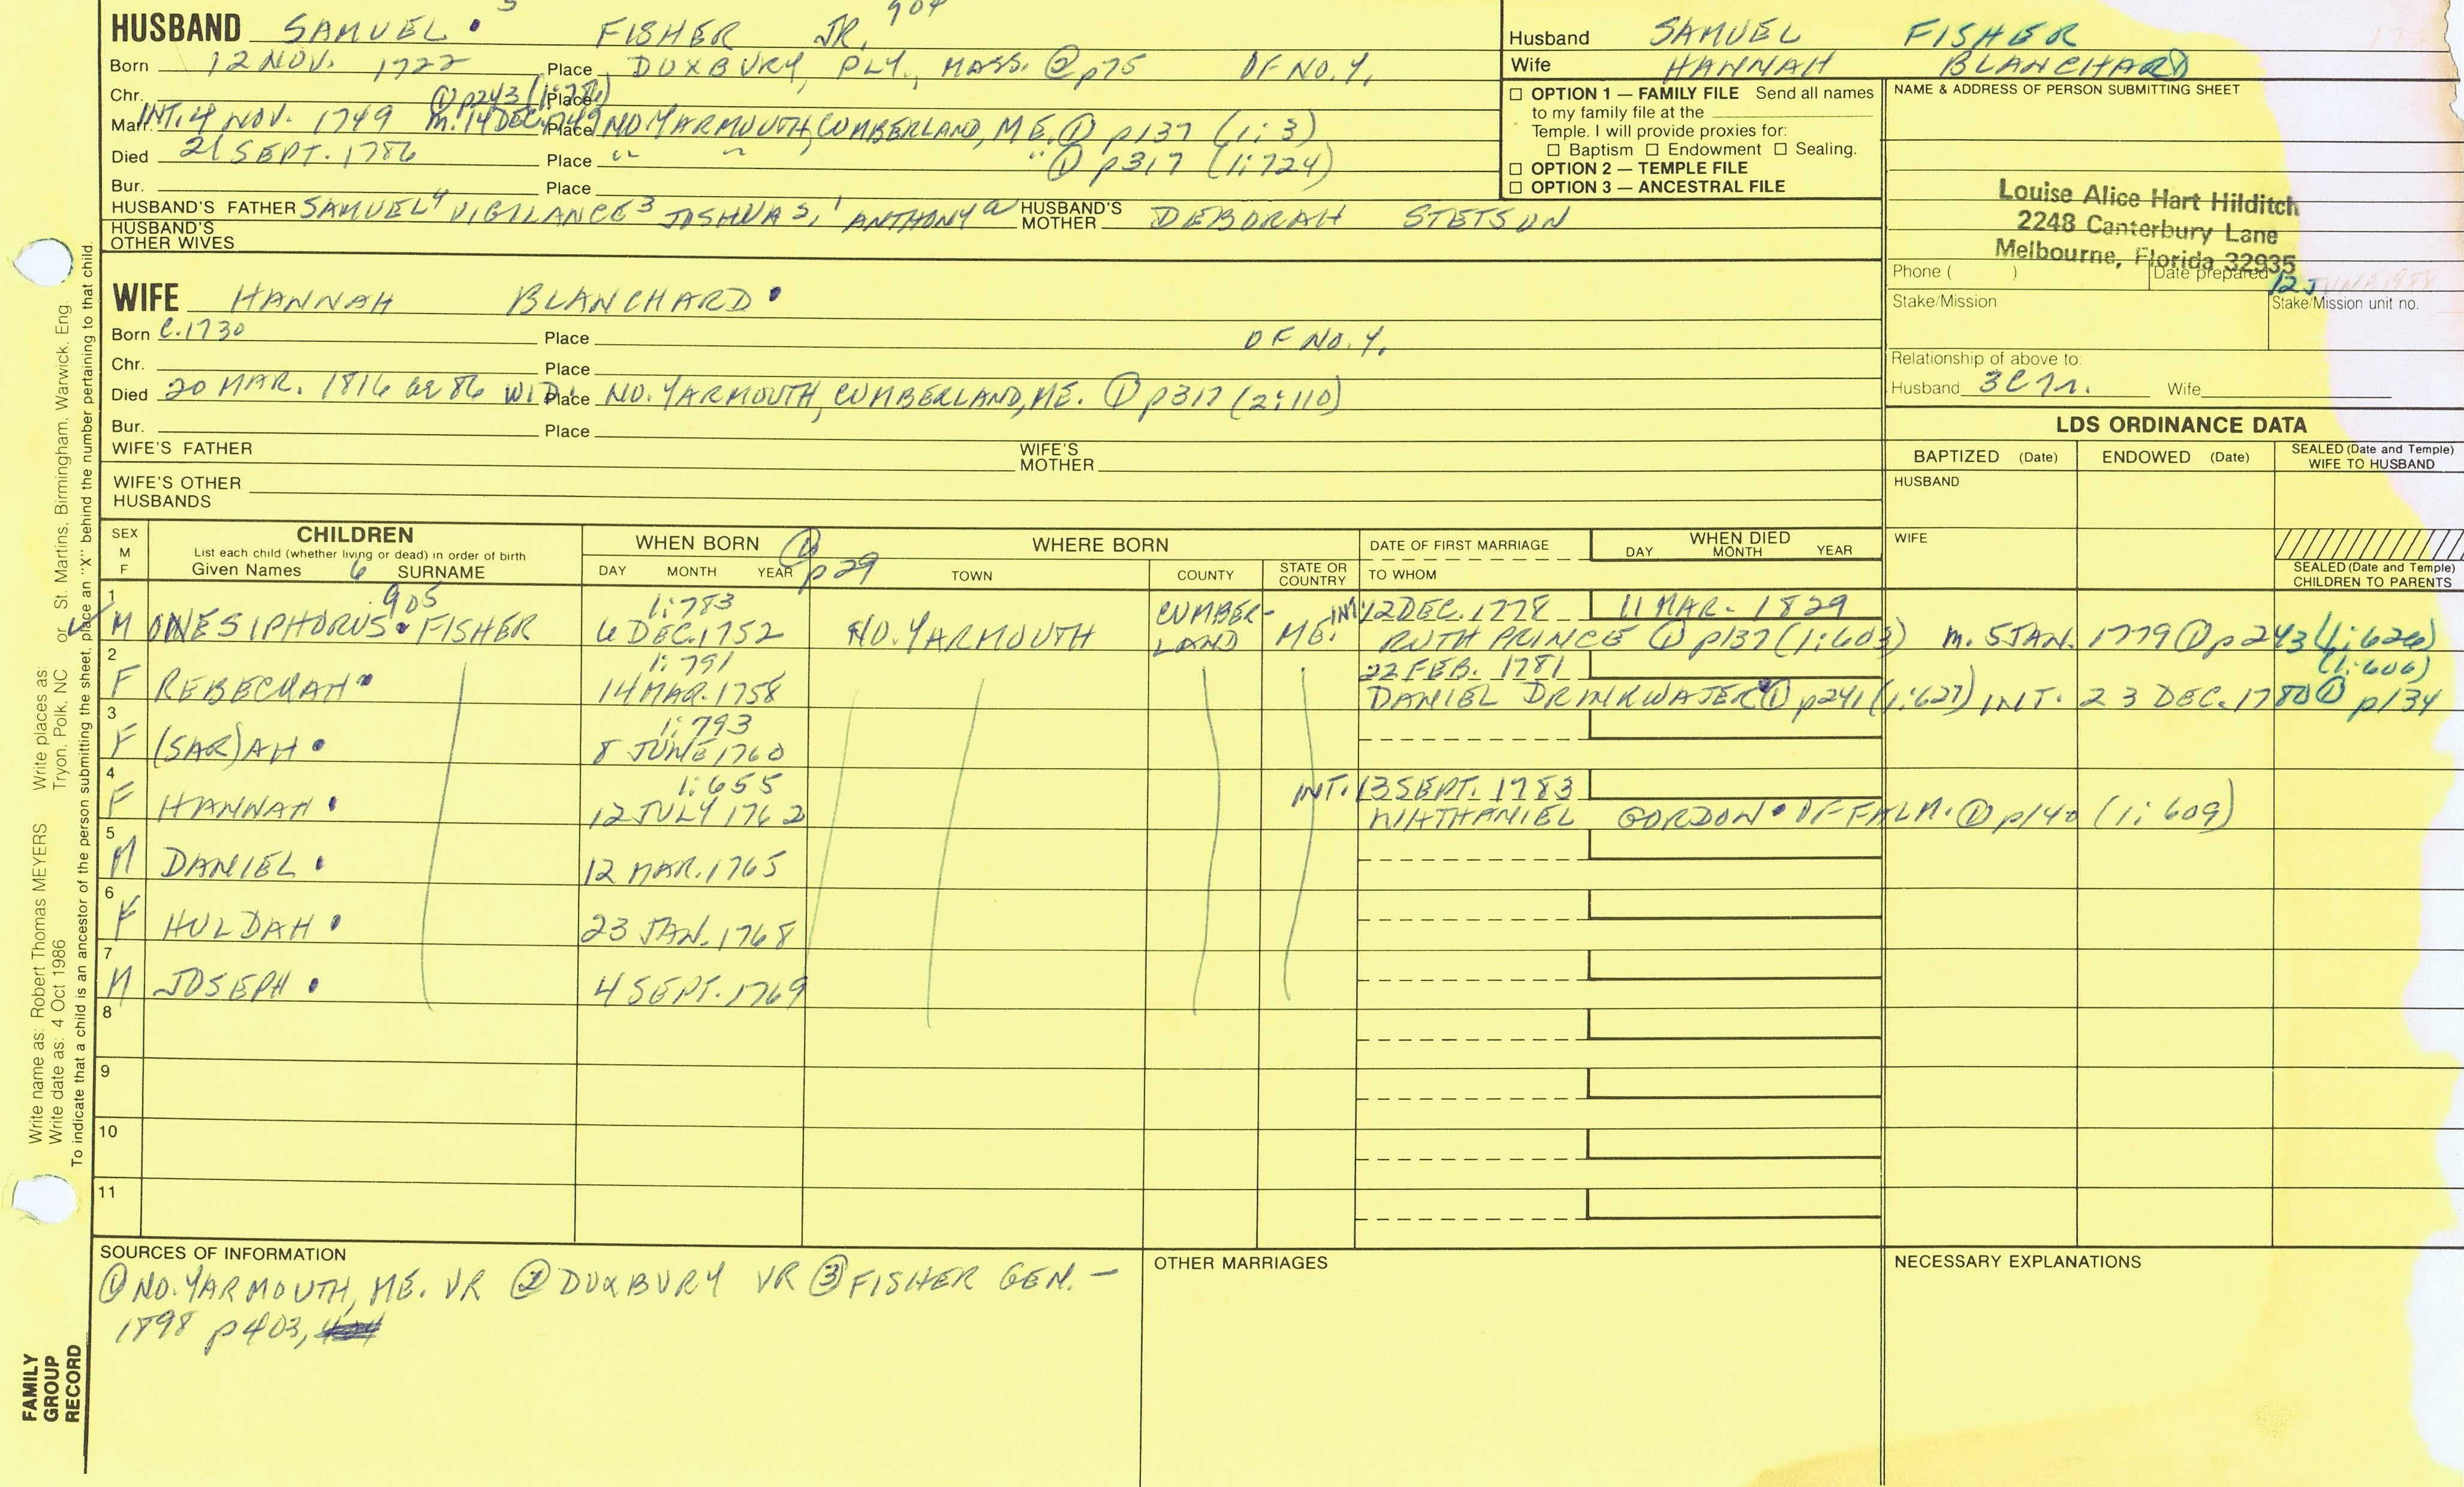 HUSBAND SAMUEL • 5 FISHER JR. 904
Born 12 NOV. 1722 Place DUXBURY, PLY., MASS. ② p75 OF NO. Y.
Chr. ① p243 Place
Marr. INT. 4 NOV. 1749 m. 14 DEC. 1749 Place NO. YARMOUTH, CUMBERLAND, ME. ① p137 (1:3)
Died 21 SEPT. 1786 Place " " " ① p317 (1:724)
Bur. Place
HUSBAND'S FATHER SAMUEL4 VIGILANCE3 JOSHUA2,1 ANTHONYa HUSBAND'S MOTHER DEBORAH STETSON
HUSBAND'S OTHER WIVES
Husband SAMUEL FISHER
Wife HANNAH BLANCHARD
☐ OPTION 1 — FAMILY FILE Send all names
to my family file at the
Temple. I will provide proxies for:
☐ Baptism ☐ Endowment ☐ Sealing.
☐ OPTION 2 — TEMPLE FILE
☐ OPTION 3 — ANCESTRAL FILE
NAME & ADDRESS OF PERSON SUBMITTING SHEET
Louise Alice Hart Hilditch
2248 Canterbury Lane
Melbourne, Florida 32935
Phone ( ) Date prepared 12 JUNE 1988
Stake/Mission Stake/Mission unit no.
Relationship of above to:
Husband 3C Wife
WIFE HANNAH BLANCHARD •
Born C. 1730 Place OF NO. Y.
Chr. Place
Died 20 MAR. 1816 ae 86 WID. Place NO. YARMOUTH, CUMBERLAND, ME. ① p317 (2:110)
Bur. Place
WIFE'S FATHER WIFE'S MOTHER
WIFE'S OTHER HUSBANDS
LDS ORDINANCE DATA
BAPTIZED (Date) ENDOWED (Date) SEALED (Date and Temple) WIFE TO HUSBAND
HUSBAND
WIFE
SEALED (Date and Temple) CHILDREN TO PARENTS
SEX M F
CHILDREN
List each child (whether living or dead) in order of birth
Given Names 6 SURNAME
WHEN BORN ① p29
DAY MONTH YEAR
WHERE BORN
TOWN COUNTY STATE OR COUNTRY
DATE OF FIRST MARRIAGE
TO WHOM
WHEN DIED
DAY MONTH YEAR
1 905 1:783 CUMBER- INT 12 DEC. 1778 11 MAR. 1829
✓ M ONESIPHORUS • FISHER 6 DEC. 1752 NO. YARMOUTH LAND ME. RUTH PRINCE ① p137 (1:603) m. 5 JAN. 1779 ① p243 (1:626)
2 1:791 22 FEB. 1781 (1:606)
F REBECKAH • 14 MAR. 1758 DANIEL DRINKWATER ① p241 (1:627) INT. 23 DEC. 1780 ① p134
3 1:793
F (SAR)AH • 8 JUNE 1760
4 1:655 INT. 13 SEPT. 1783
F HANNAH • 12 JULY 1762 NATHANIEL GORDON • OF FALM. ① p140 (1:609)
5
M DANIEL • 12 MAR. 1765
6
F HULDAH • 23 JAN. 1768
7
M JOSEPH • 4 SEPT. 1769
8
9
10
11
SOURCES OF INFORMATION
① NO. YARMOUTH, ME. VR ② DUXBURY VR ③ FISHER GEN. —
1898 p403,
OTHER MARRIAGES
NECESSARY EXPLANATIONS
FAMILY GROUP RECORD
Write name as: Robert Thomas MEYERS Write places as: St. Martins, Birmingham, Warwick, Eng.
Write date as: 4 Oct 1986 Tryon, Polk, NC or
To indicate that a child is an ancestor of the person submitting the sheet, place an "X" behind the number pertaining to that child.